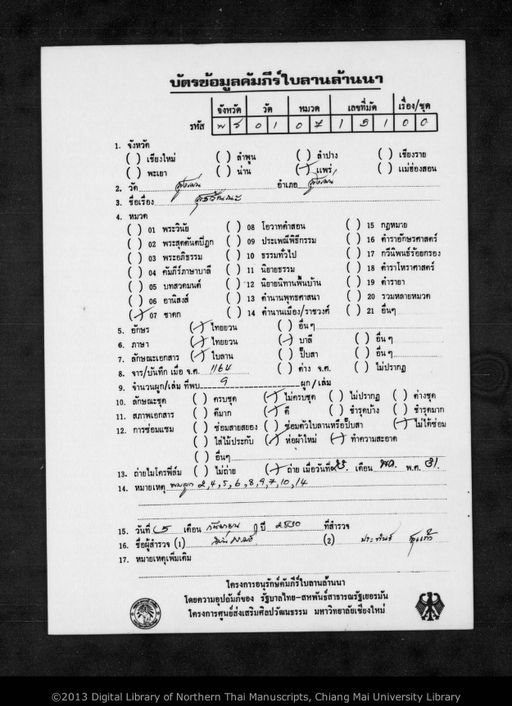 บัตรข้อมูลคัมภีร์ใบลานล้านนา
จังหวัด วัด หมวด เลขที่มัด เรื่อง/ชุด
รหัส พ ร 0 1 0 7 1 5 1 0 0
1. จังหวัด
( ) เชียงใหม่ ( ) ลำพูน ( ) ลำปาง ( ) เชียงราย
( ) พะเยา ( ) น่าน (✓) แพร่ ( ) แม่ฮ่องสอน
2. วัด สูงเม่น อำเภอ สูงเม่น
3. ชื่อเรื่อง
4. หมวด
( ) 01 พระวินัย ( ) 08 โอวาทคำสอน ( ) 15 กฎหมาย
( ) 02 พระสุตตันตปิฎก ( ) 09 ประเพณีพิธีกรรม ( ) 16 ตำราอักษรศาสตร์
( ) 03 พระอภิธรรม ( ) 10 ธรรมทั่วไป ( ) 17 กวีนิพนธ์ร้อยกรอง
( ) 04 คัมภีร์ภาษาบาลี ( ) 11 นิยายธรรม ( ) 18 ตำราโหราศาสตร์
( ) 05 บทสวดมนต์ ( ) 12 นิยายนิทานพื้นบ้าน ( ) 19 ตำรายา
( ) 06 อานิสงส์ ( ) 13 ตำนานพุทธศาสนา ( ) 20 รวมหลายหมวด
(✓) 07 ชาดก ( ) 14 ตำนานเมือง/ราชวงศ์ ( ) 21 อื่นๆ
5. อักษร (✓) ไทยยวน ( ) อื่นๆ
6. ภาษา (✓) ไทยยวน (✓) บาลี ( ) อื่น ๆ
7. ลักษณะเอกสาร (✓) ใบลาน ( ) ปั๊บสา ( ) อื่น ๆ
8. จาร/บันทึก เมื่อ จ.ศ. 1164 ( ) ต่าง จ.ศ. ( ) ไม่ปรากฏ
9. จำนวนผูก/เล่ม ที่พบ 9 ผูก/เล่ม
10. ลักษณะชุด ( ) ครบชุด (✓) ไม่ครบชุด ( ) ไม่ปรากฏ ( ) ต่างชุด
11. สภาพเอกสาร ( ) ดีมาก (✓) ดี ( ) ชำรุดบ้าง ( ) ชำรุดมาก
12. การซ่อมแซม ( ) ซ่อมสายสยอง ( ) ซ่อมตัวใบลานหรือปั๊บสา (✓) ไม่ได้ซ่อม
( ) ใส่ไม้ประกับ (✓) ห่อผ้าใหม่ (✓) ทำความสะอาด
( ) อื่นๆ
13. ถ่ายไมโครฟิล์ม ( ) ไม่ถ่าย (✓) ถ่าย เมื่อวันที่ เดือน พ.ศ. 31
14. หมายเหตุ พบผูก 2,4,5,6,8,9,7,10,14
15. วันที่ 5 เดือน กันยายน ปี 2530 ที่สำรวจ
16. ชื่อผู้สำรวจ (1) (2)
17. หมายเหตุเพิ่มเติม
โครงการอนุรักษ์คัมภีร์ใบลานล้านนา
โดยความอุปถัมภ์ของ รัฐบาลไทย-สหพันธ์สาธารณรัฐเยอรมัน
โครงการศูนย์ส่งเสริมศิลปวัฒนธรรม มหาวิทยาลัยเชียงใหม่
©2013 Digital Library of Northern Thai Manuscripts, Chiang Mai University Library